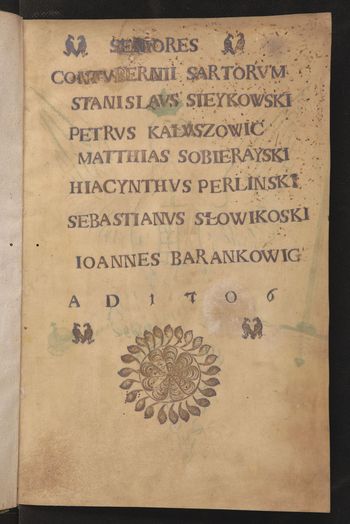 SENIORES
CONTVBERNII SARTORVM
STANISLAVS SIEYKOWSKI
PETRVS KAŁVSZOWIC
MATTHIAS SOBIERAYSKI
HIACYNTHVS PERLINSKI
SEBASTIANVS SŁOWIKOSKI
IOANNES BARANKOWIG
A D 1706